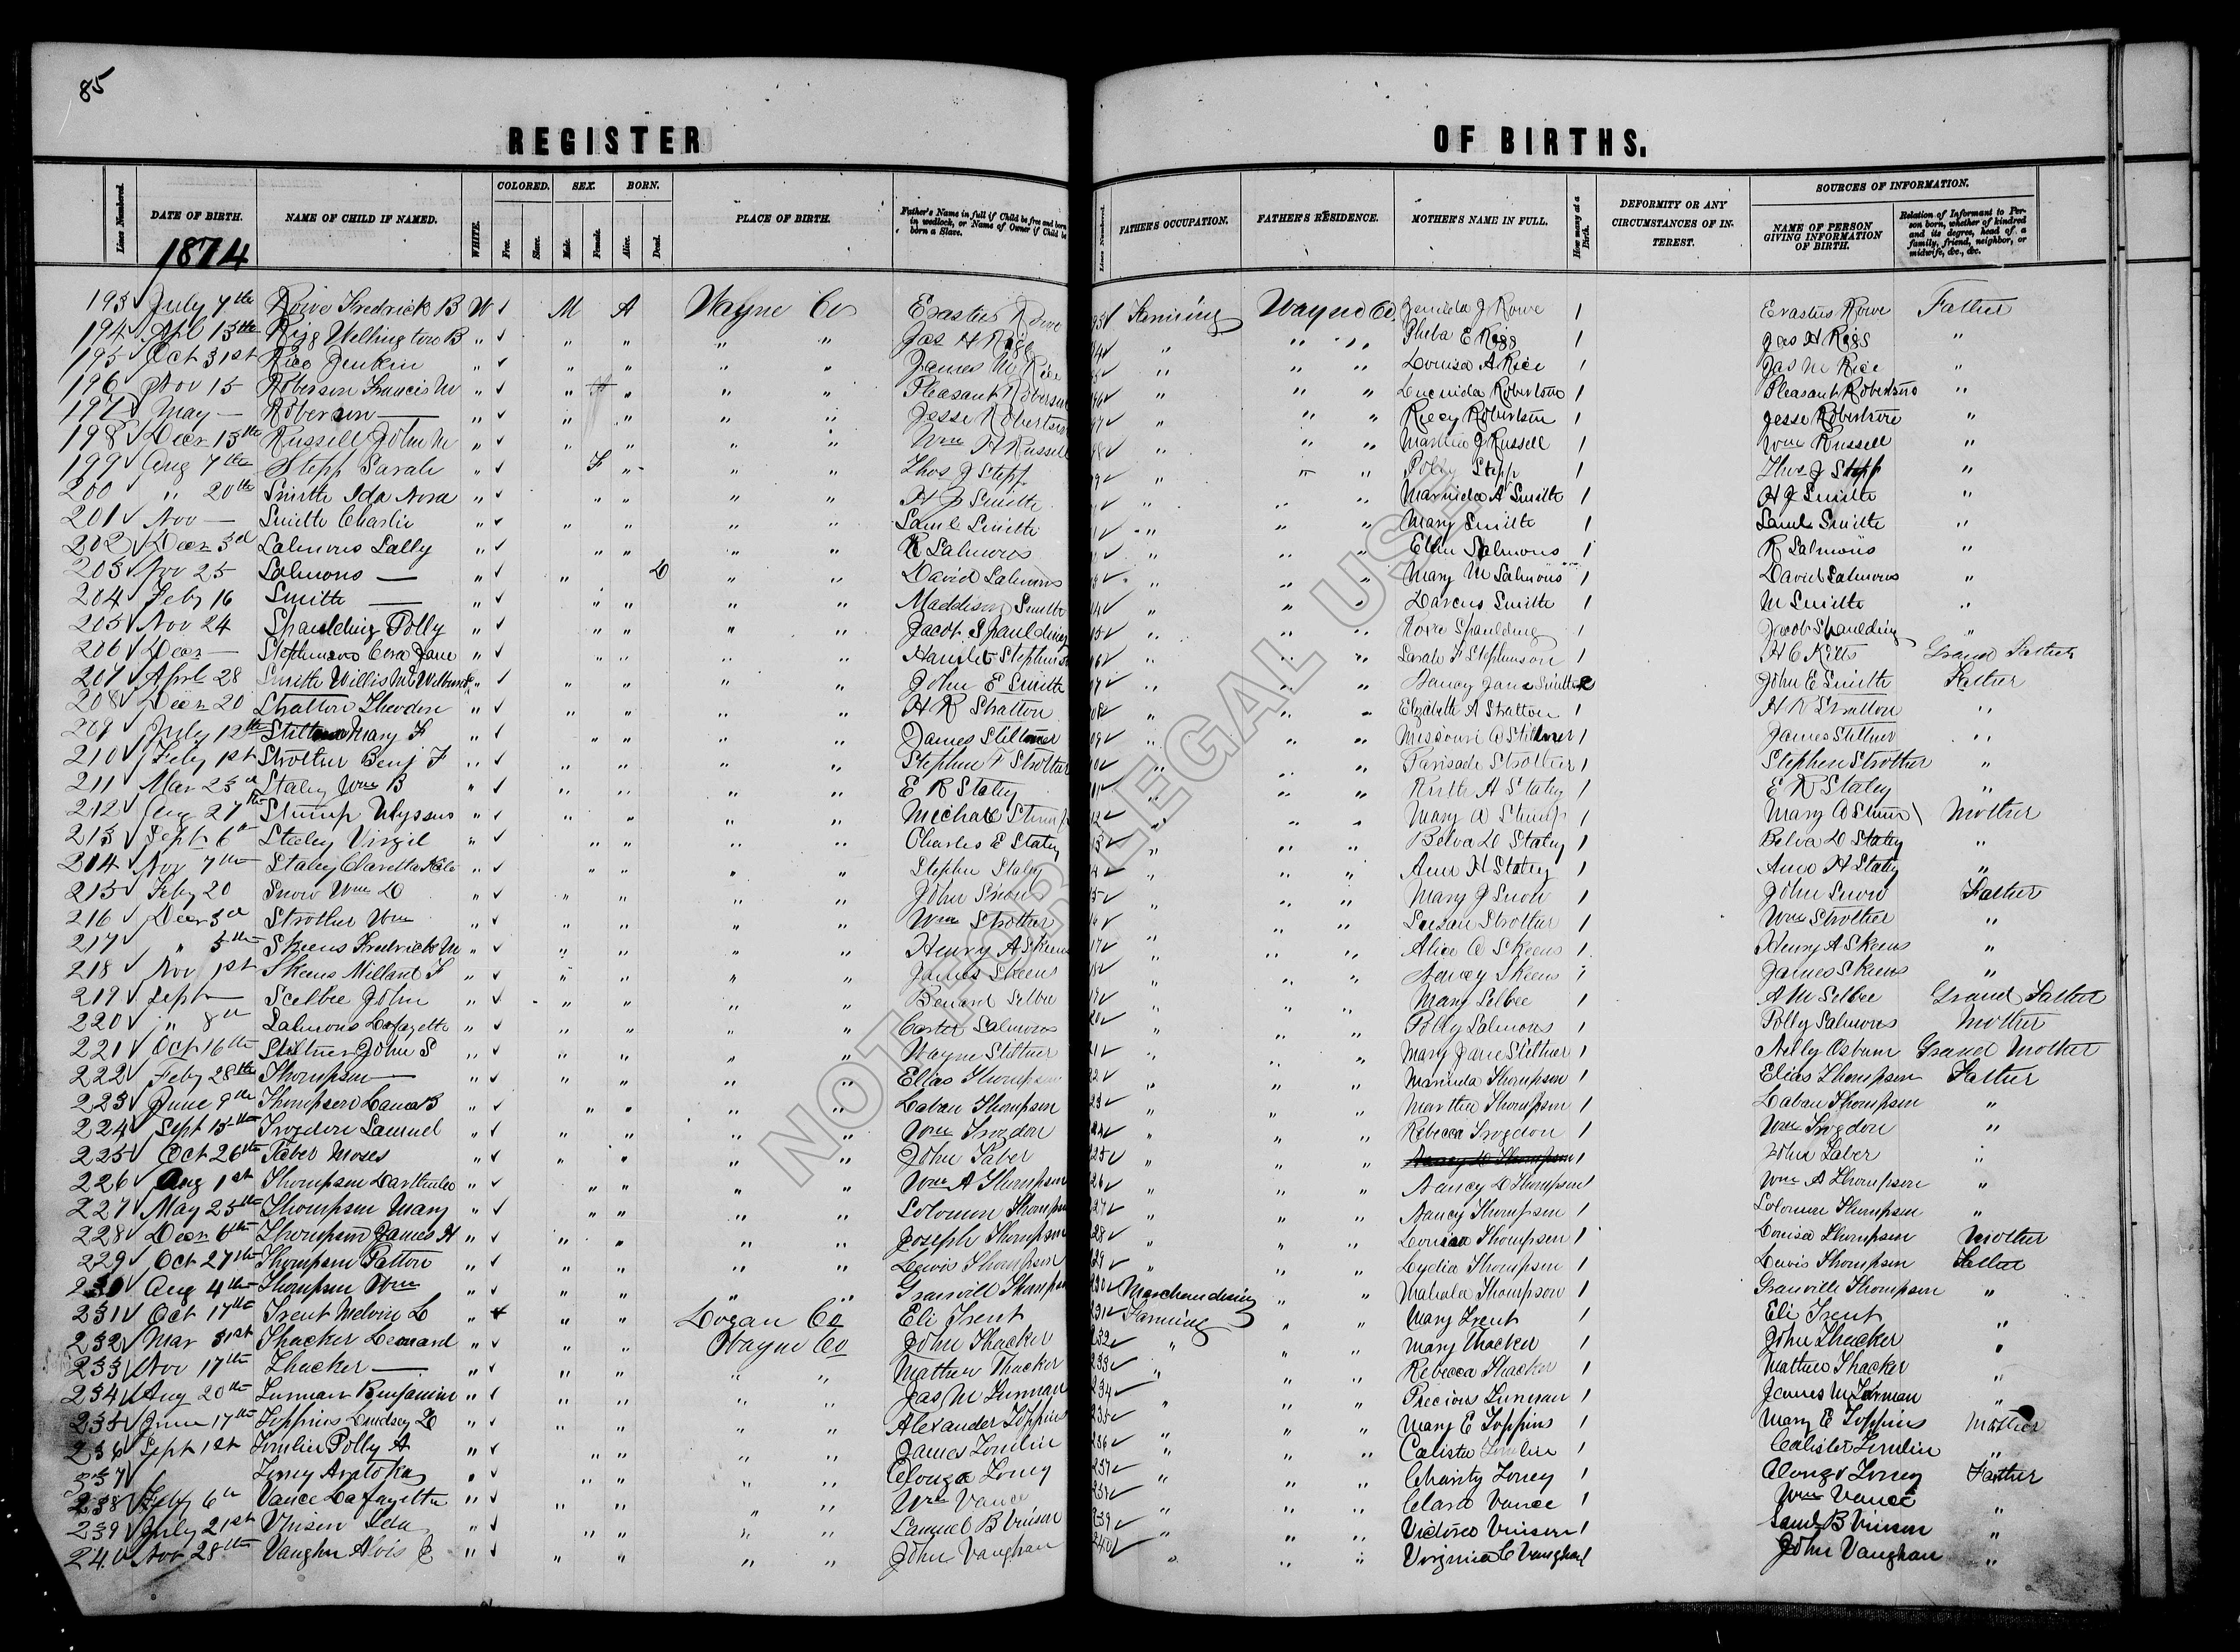 85
REGISTER OF BIRTHS.
Lines Numbered. DATE OF BIRTH. NAME OF CHILD IF NAMED. WHITE. COLORED. Free. Slave. SEX. Male. Female. BORN. Alive. Dead. PLACE OF BIRTH. Father's Name in full if Child be free and born in wedlock, or Name of Owner if Child be born a Slave. Lines Numbered. FATHER'S OCCUPATION. FATHER'S RESIDENCE. MOTHER'S NAME IN FULL. How many at a Birth. DEFORMITY OR ANY CIRCUMSTANCES OF INTEREST. SOURCES OF INFORMATION. NAME OF PERSON GIVING INFORMATION OF BIRTH. Relation of Informant to Person born, whether of kindred and its degree, head of a family, friend, neighbor, or midwife, &c., &c.
1874
193 ✓ July 7th Rowe Fredrick B W ✓ M A Wayne Co Erastus Rowe ✓ Farming Wayne Co. J Rowe 1 Erastus Rowe Father
194 ✓ Apl 13th Rigg Wellington B " ✓ " " " " Jas H Rigg ✓ " " " Pheba E Rigg 1 Jas H Rigg "
195 ✓ Oct 31st Rice Jenkin " ✓ " " " " James M Rice ✓ " " " Louisa A Rice 1 Jas M Rice "
196 ✓ Nov 15 Roberson Francis M " ✓ " " " " Pleasant Roberson ✓ " " " Lucinda Robertson 1 Pleasant Robertson "
197 ✓ May — Roberson — " ✓ " " " " Jesse Robertson ✓ " " " Robertson 1 Jesse Robertson "
198 ✓ Decr 13th Russell John M " ✓ " " " " Wm H Russell ✓ " " " Martha J Russell 1 Wm Russell "
199 ✓ Aug 7th Stepp Sarah " ✓ F " " " Thos J Stepp ✓ " " " Polly Stepp 1 Thos J Stepp "
200 " 20th Smith Ida Nora " ✓ " " " " H J Smith ✓ " " " A Smith 1 H J Smith "
201 ✓ Nov — Smith Charlie " ✓ " " " " Saml Smith ✓ " " " Mary Smith 1 Saml Smith "
202 ✓ Decr 3d Salmons Sally " ✓ " " " " R Salmons ✓ " " " Salmons 1 R Salmons "
203 ✓ Nov 25 Salmons — " ✓ " D " " David Salmons ✓ " " " Mary M Salmons 1 David Salmons "
204 ✓ Feby 16 Smith — " ✓ " " " " Maddison Smith ✓ " " " Darcus Smith 1 M Smith "
205 ✓ Nov 24 Spaulding Polly " ✓ " " " " Jacob Spaulding ✓ " " " Spaulding 1 Jacob Spaulding "
206 ✓ Decr — Stephenson Cora Jane " ✓ " " " " Stephenson ✓ " " " Sarah F Stephenson 1 H C Kitts Grand Father
207 ✓ April 28 Smith Willis M & " ✓ " " " " John E Smith ✓ " " " Nancy Jane Smith 2 John E Smith Father
208 ✓ Decr 20 Stratton " ✓ " " " " H R Stratton ✓ " " " Elizabeth A Stratton 1 H R Stratton "
209 ✓ July 12th Mary F " ✓ " " " " James Stiltner ✓ " " " Missouri Stiltner 1 James Stiltner "
210 ✓ Feby 1st Strother Benj F " ✓ " " " " Stephen F Strother ✓ " " " Parisade Strother 1 Stephen Strother "
211 ✓ Mar 23d Staley Wm B " ✓ " " " " E R Staley ✓ " " " Ruth A Staley 1 E R Staley "
212 ✓ Aug 27th Stump Ulysses " ✓ " " " " Stump ✓ " " " Mary A Stump 1 Mary A Mother
213 ✓ Sept 6th Staley Virgil " ✓ " " " " Charles E Staley ✓ " " " Belva D Staley 1 Belva D Staley "
214 ✓ Nov 7th Staley " ✓ " " " " Stephen Staley ✓ " " " Ann H Staley 1 Ann H Staley "
215 ✓ Feby 20 Snow Wm D " ✓ " " " " John Snow ✓ " " " Mary J Snow 1 John Snow Father
216 ✓ Decr 3d Strother Wm " ✓ " " " " Wm Strother ✓ " " " Susan Strother 1 Wm Strother "
217 ✓ " 5th Skeens Fredrick M " ✓ " " " " Henry A Skeens ✓ " " " Alice Skeens 1 Henry A Skeens "
218 ✓ Nov 1st Skeens Millard F " ✓ " " " " James Skeens ✓ " " " Nancy Skeens 1 James Skeens "
219 ✓ Sept — Scelbee John " ✓ " " " " Selbee ✓ " " " Mary Selbee 1 A M Selbee Grand Father
220 ✓ " 8th Salmons Lafayette " ✓ " " " " Carter Salmons ✓ " " " Polly Salmons 1 Polly Salmons Mother
221 ✓ Oct 16th Stiltner John S " ✓ " " " " Wayne Stiltner ✓ " " " Mary Jane Stiltner 1 Nelly Osburn Grand Mother
222 ✓ Feby 28th Thompson — " ✓ " " " " Elias Thompson ✓ " " " Marinda Thompson 1 Elias Thompson Father
223 ✓ June 9th Thompson " ✓ " " " " Laban Thompson ✓ " " " Martha Thompson 1 Laban Thompson "
224 ✓ Sept 15th Trogdon Samuel " ✓ " " " " Wm Trogdon ✓ " " " Rebecca Trogdon 1 Wm Trogdon "
225 ✓ Oct 26th Taber Moses " ✓ " " " " John Taber 225 ✓ " " " 1 John Taber "
226 ✓ Aug 1st Thompson " ✓ " " " " Wm A Thompson ✓ " " " Nancy D Thompson 1 Wm A Thompson "
227 ✓ May 25th Thompson Mary " ✓ " " " " Solomon Thompson ✓ " " " Nancy Thompson 1 Solomon Thompson "
228 ✓ Decr 6th Thompson James H " ✓ " " " " Joseph Thompson ✓ " " " Louisa Thompson 1 Louisa Thompson Mother
229 ✓ Oct 27th Thompson Patton " ✓ " " " " Lewis Thompson ✓ " " " Lydia Thompson 1 Lewis Thompson Father
230 Aug 4th Thompson Wm " ✓ " " " " Granvill Thompson 230 ✓ Marchandising " " Mahala Thompson 1 Granville Thompson "
231 ✓ Oct 17th Trent Melvin L " ✓ " " Logan Co Eli Trent 231 ✓ Farming " " Mary Trent 1 Eli Trent "
232 ✓ Mar 31st Thacker Leonard " ✓ " " Wayne Co John Thacker 232 ✓ " " " Mary Thacker 1 John Thacker "
233 ✓ Nov 17th Thacker — " ✓ " " " " Mathew Thacker 233 ✓ " " " Rebecca Thacker 1 Mathew Thacker "
234 ✓ Aug 20th Lunman Benjamin " ✓ " " " " Jas M Lunman 234 ✓ " " " Precious Lunman 1 James M "
235 ✓ June 17th Toppins Lindsey " ✓ " " " " Alexander Toppins 235 ✓ " " " Mary E Toppins 1 Mary E Toppins Mother
236 ✓ Sept 1st Tomlin Polly A " ✓ " " " " James Tomlin 236 ✓ " " " Calista Tomlin 1 Tomlin "
337 ✓ Toney " ✓ " " " " Alonzo Toney 237 ✓ " " " Charity Toney 1 Alonzo Toney Father
238 ✓ Feby 6th Vance Lafayette " ✓ " " " " Wm Vance 238 ✓ " " " Clara Vance 1 Wm Vance "
239 ✓ July 21st Vinson Ida " ✓ " " " " Samuel B Vinson 239 ✓ " " " Vinson 1 Saml B Vinson "
240 ✓ Nov 28th Vaughn " ✓ " " " " John Vaughan 240 ✓ " " " Virginia Vaughan 1 John Vaughan "
NOT FOR LEGAL USE